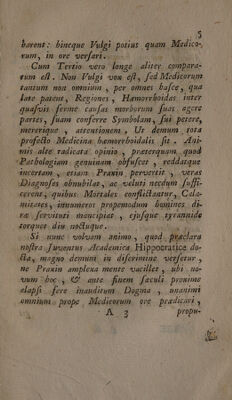 5
harent: hincque Vulgi potius quam Medico-
rum, in ore versari.
Cum Tertio vero longe aliter compara-
tum est. Non Vulgi vox est, sed Medicorum
tantum non omnium, per omnes hasce, qua
late patent, Regiones, Hæmorrhoidas inter
quasvis ferme causas morborum suas agere
partes, suam conferre Symbolam, sui petere,
mererique, attentionem. Ut demum tota
profecto Medicina hæmorrhoidalis sit. Ani-
mis alte radicata opinio, præterquam quod
Pathologiam genuinam obfuscet, reddatque
incertam, etiam Praxin pervertit, veras
Diagnoses obnubilat, ac veluti necdum suffi-
cerent, quibus Mortales conflictantur, Cala-
mitates, innumeros propemodum homines di-
ræ servituti mancipias, ejusque tyrannide
torquet diu noctuque.
Si nunc volvam animo, quod præclara
nostra Juventus Academica Hippocratice do-
cta, magno demum in discrimine versetur,
ne Praxin amplexa mente vacillet, ubi no-
vum hoc, & ante finem sæculi proxime
elapsi fere inauditum Dogma, unanimi
omnium prope Medicorum ore prædicari,
A 3 propu-